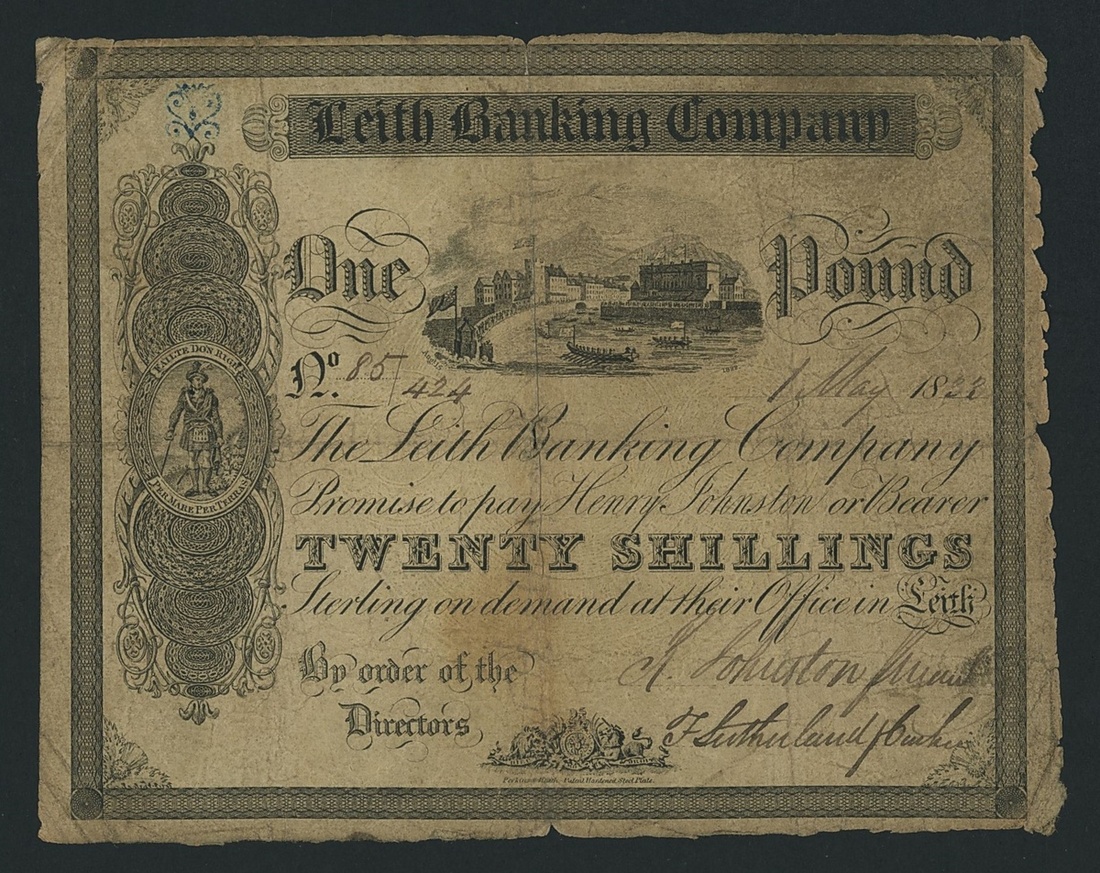 Leith Banking Company
One Pound
No. 85/424
1 May 18
FAILTE DON RIGH
PER MARE PER TERRAS
The Leith Banking Company
Promise to pay Henry Johnston or Bearer
TWENTY SHILLINGS
Sterling on demand at their Office in Leith
By order of the
Directors
H. Johnston
F Sutherland
Perkins & Heath, Patent Hardened Steel Plate.